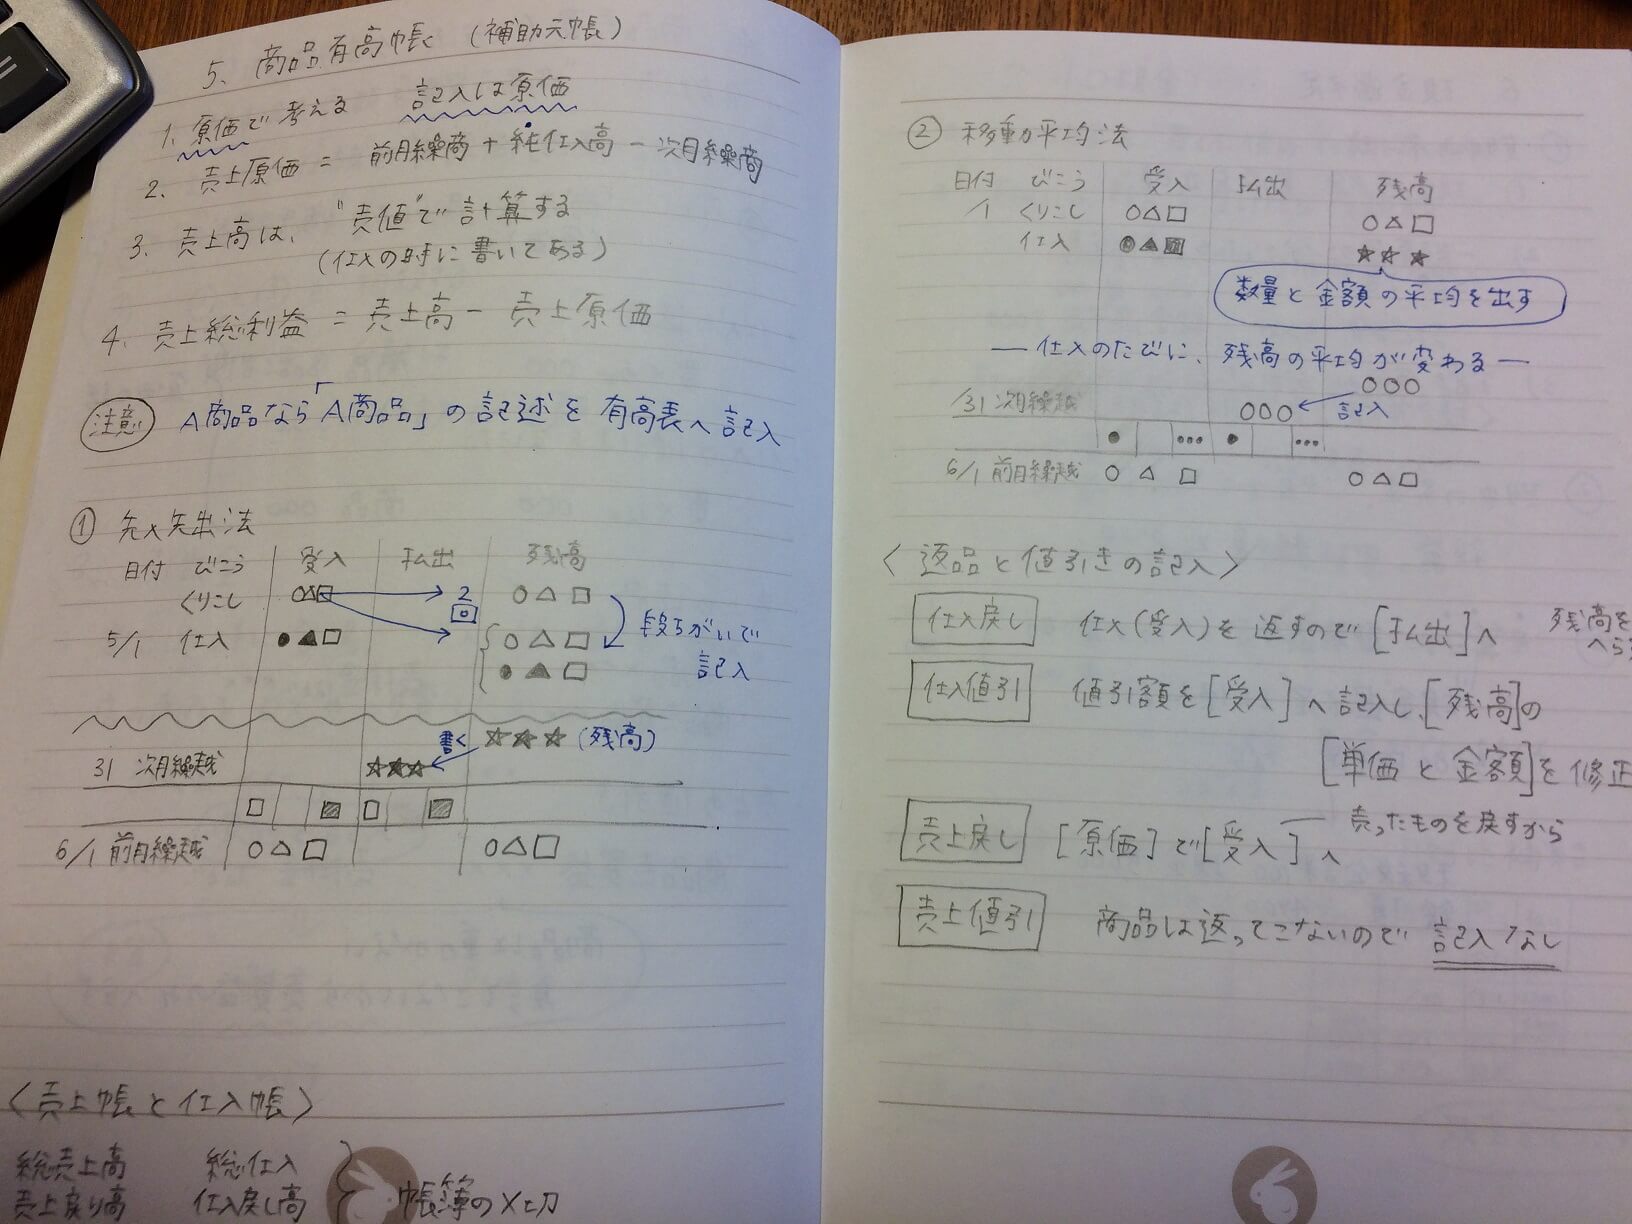 5、商品有高帳 (補助元帳)
1、原価で考える 記入は原価
2、売上原価 = 前月繰商 + 純仕入高 − 次月繰商
3、売上高は、"売値"で計算する
(仕入の時に書いてある)
4、売上総利益 = 売上高 − 売上原価
注意 A商品なら「A商品」の記述を有高表へ記入
① 先入先出法
日付 びこう 受入 払出 残高
くりこし ○△□ 2 ○△□
5/1 仕入 ●▲□ ○△□ 段ちがいで
●▲□ 記入
書く ☆☆☆ (残高)
31 次月繰越 ☆☆☆
6/1 前月繰越 ○△□ ○△□
〈売上帳と仕入帳〉
総売上高 総仕入
売上戻り高 仕入戻し高 帳簿の〆切
② 移動平均法
日付 びこう 受入 払出 残高
/1 くりこし ○△□ ○△□
仕入 ●▲■ ☆☆☆
数量と金額の平均を出す
— 仕入のたびに、残高の平均が変わる —
○○○
/31 次月繰越 ○○○ 記入
● ••• ● •••
6/1 前月繰越 ○ △ □ ○△□
〈返品と値引きの記入〉
仕入戻し 仕入(受入)を返すので[払出]へ 残高を
へら
仕入値引 値引額を[受入]へ記入し、[残高]の
[単価と金額]を修正
売上戻し [原価]で[受入]へ 売ったものを戻すから
売上値引 商品は返ってこないので 記入なし